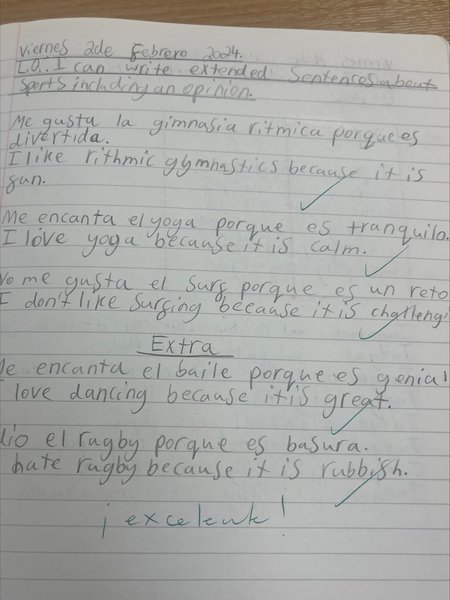 viernes 2de Febrero 2024.
L.O.: I can write extended sentences about
sports including an opinion.
Me gusta la gimnasia ritmica porque es
divertida.
I like rithmic gymnastics because it is
fun.
Me encanta el yoga porque es tranquilo.
I love yoga because it is calm.
No me gusta el surf porque es un reto
I don't like surfing because it is challengi
Extra
Me encanta el baile porque es genial
I love dancing because it is great.
dio el rugby porque es basura.
hate rugby because it is rubbish.
¡excelente!